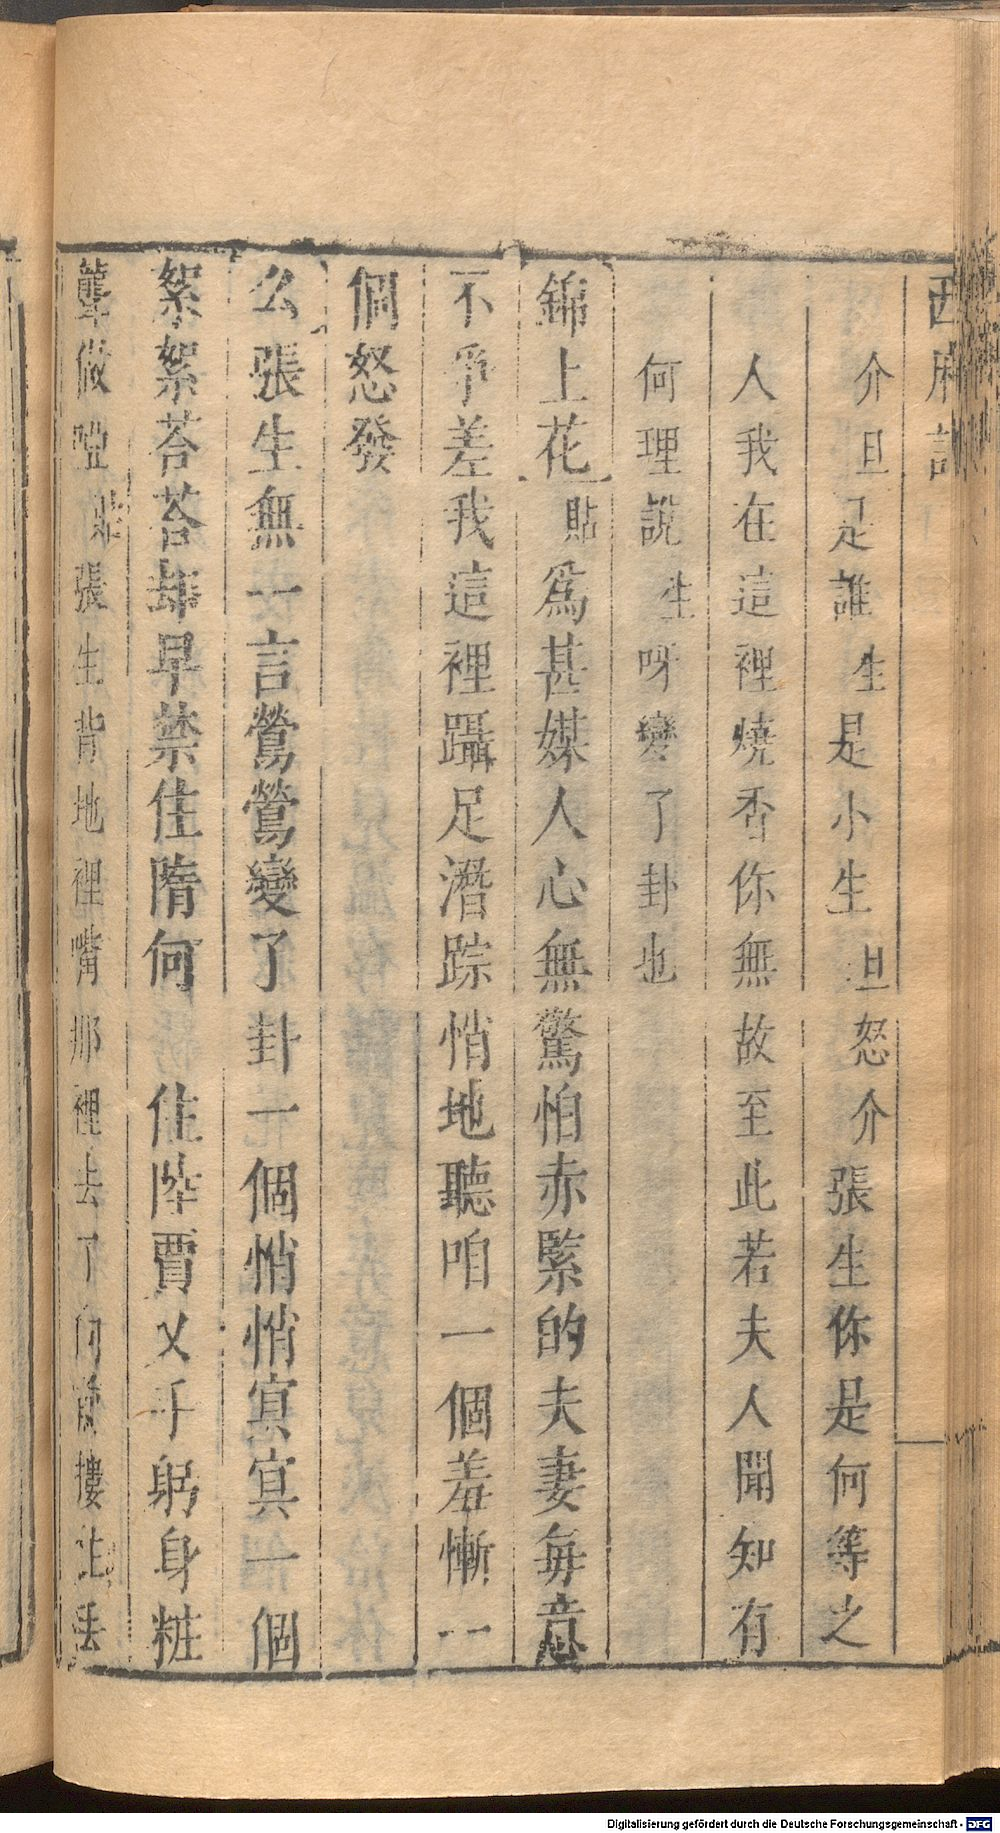 西廂記
介旦是誰生是小生旦怒介張生你是何等之
人我在這裡燒香你無故至此若夫人聞知有
何理說生呀變了卦也
錦上花貼爲甚媒人心無驚怕赤緊的夫妻每意
不爭差我這裡躡足潛踪悄地聽咱一個羞慚一
個怒發
么張生無一言鶯鶯變了卦一個悄悄寘寘一個
絮絮荅荅却早禁住隋何住陸賈叉手躬身粧
聾做啞張生背地裡嘴那裡去了向前摟住丢
Digitalisierung gefördert durch die Deutsche Forschungsgemeinschaft - DFG